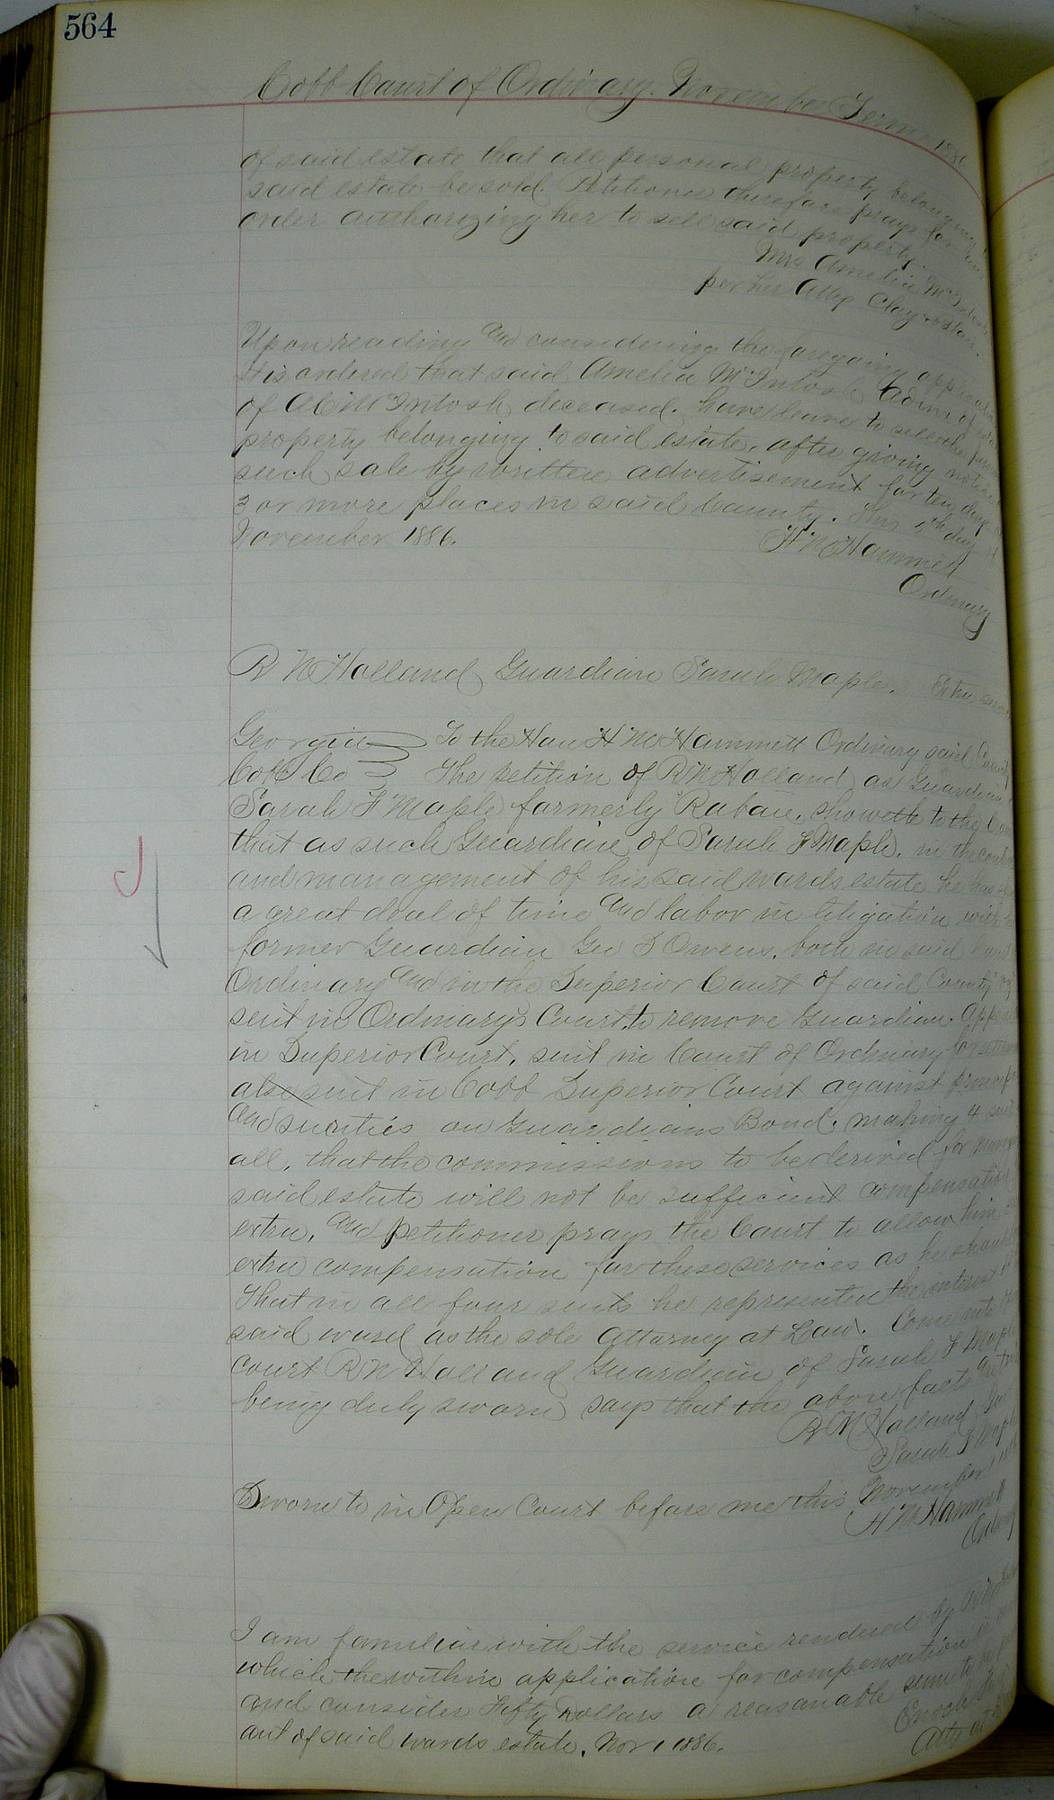 564
Cobb Court of Ordinary. November Term 1886
of said estate that all personal property belonging
said estate be sold. Petitioner therefore prays for an
order authorizing her to sell said property.
Mrs Amelia McIntosh
per her Atty Clay
Upon reading and considering the foregoing
It is ordered that said Amelia McIntosh Admx of
of McIntosh deceased. have leave to sell the
property belonging to said estate, after giving notice
such sale by written advertisement for ten days
3 or more places in said County. This day
November 1886.
H M Hammett
Ordinary
R N Holland Guardian Sarah Maple.
Georgia To the Hon H M Hammett Ordinary said County
Cobb Co The petition of R N Holland as Guardian
Sarah F Maple formerly Raban, showeth to the
that as such Guardian of Sarah F Maple. in the
and management of his said wards estate he has
a great deal of time and labor in litigation with
former Guardian Geo S Owens, both in said
Ordinary and in the Superior Court of said County
suit in Ordinarys Court to remove Guardian.
in Superior Court, suit in Court of Ordinary for
also suit in Cobb Superior Court against
and sureties on Guardians Bond. making 4
all, that the commissions to be derived for
said estate will not be sufficient compensation
extra, and petitioner prays the Court to allow him
extra compensation for these services as he
That in all four suits he represented the interest
said ward as the sole Attorney at Law. Come into
court R N Holland Guardian of Sarah F Maple
being duly sworn says that the above facts
R N Holland
Sarah F
Sworn to in Open Court before me this November
H M Hammett
I am familiar with the service rendered by
which the within application for compensation
and consider Fifty Dollars a reasonable sum to
out of said wards estate. Nov 1 1886.
Enoch
Atty at